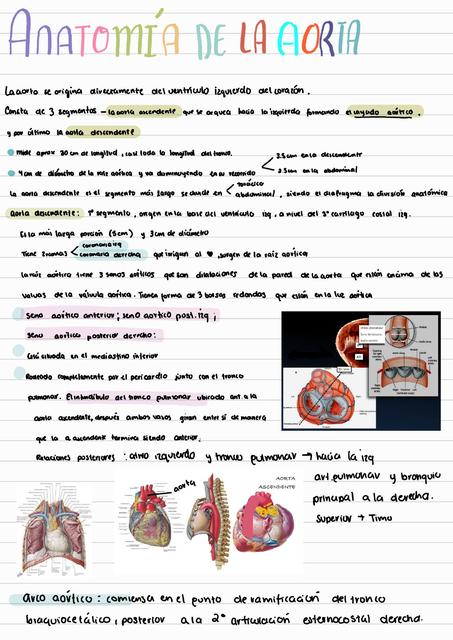 ANATOMÍA DE LA AORTA
La aorta se origina directamente del ventrículo izquierdo del corazón.
Consta de 3 segmentos - la aorta ascendente que se arquea hacia la izquierda formando el cayado aórtico,
y por último la aorta descendente
Mide aprox 30 cm de longitud, casi toda la longitud del tronco.
4cm de diámetro de la raíz aórtica y va disminuyendo en su recorrido
2.5cm en la descendente
2.5cm en la abdominal
La aorta descendente es el segmento más largo se divide en torácica abdominal, siendo el diafragma la división anatómica
Aorta descendente: 1° segmento, origen en la base del ventrículo izq, a nivel del 3° cartílago costal izq.
Es la más larga porción (5cm) y 3cm de diámetro
Tiene 2 ramas coronaria izq coronaria derecha que irrigan al ♥, surgen de la raíz aórtica
La raíz aórtica tiene 3 senos aórticos que son dilataciones de la pared de la aorta que están encima de las
valvas de la válvula aórtica. Tienen forma de 3 bolsas redondas que están en la luz aórtica
Seno aórtico anterior; seno aórtico post. izq;
seno aórtico posterior derecho:
Está situada en el mediastino inferior
Rodeado completamente por el pericardio junto con el tronco
pulmonar. El infundíbulo del tronco pulmonar ubicado ant. a la
aorta ascendente, después ambos vasos giran entre sí de manera
que la a ascendente termina siendo anterior.
Relaciones posteriores: atrio izquierdo y tronco pulmonar → hacia la izq
art. pulmonar y bronquio
principal a la derecha.
Superior → Timo
aorta
AORTA
ASCENDENTE
Arco aórtico: comienza en el punto de ramificación del tronco
braquiocefálico, posterior a la 2° articulación esternocostal derecha.